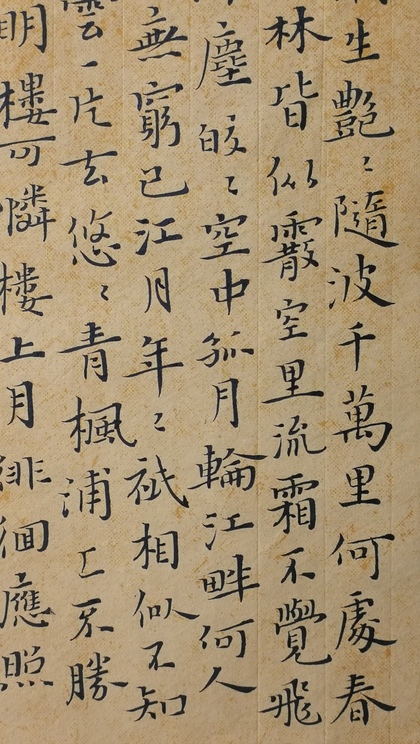 生艷〻隨波千萬里何處春
林皆似霰空里流霜不覺飛
塵皎〻空中孤月輪江畔何人
無窮已江月年〻祇相似不知
雲一片去悠〻青楓浦上不勝
明樓可憐樓上月徘徊應照